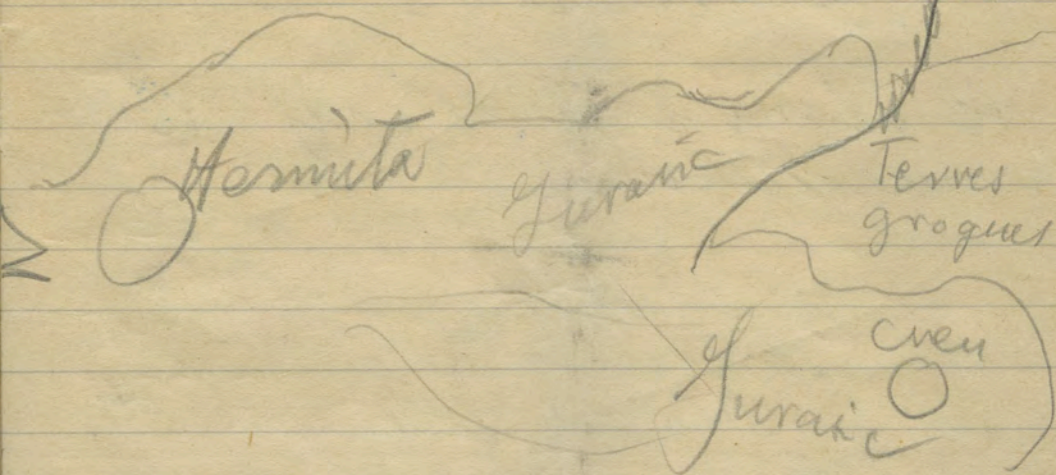 Hermita
Jurasic
Terres
grogues
creu
Jurasic